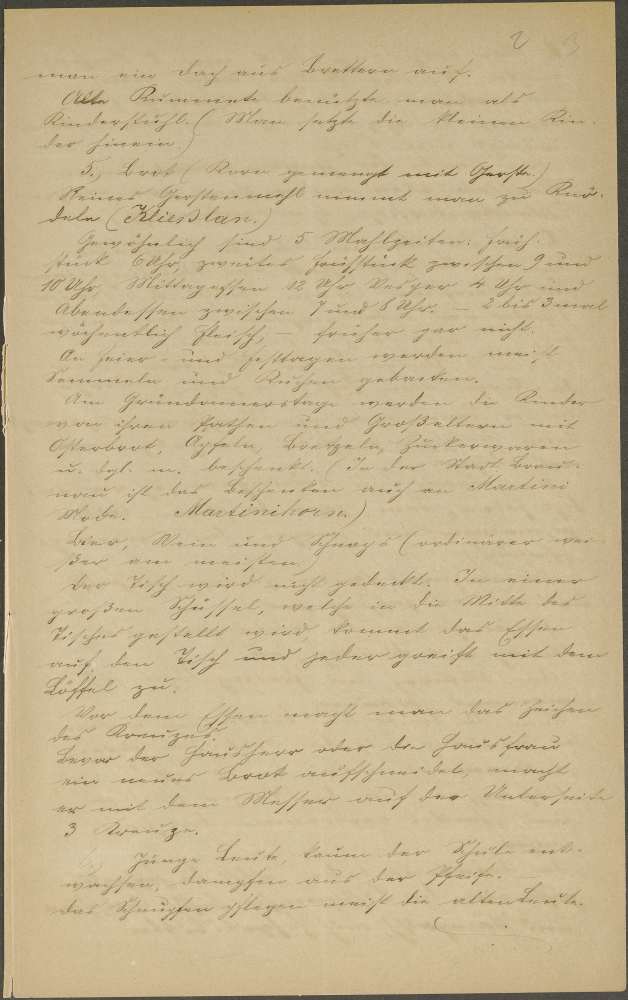 2 3
man ein Dach aus Brettern auf.
Alte Rumennete benützte man als
Kinderstuhl. (Man setzte die kleinen Kin-
der hinein.)
5., Brot (Korn gemengt mit Gerste.)
Reines Gerstenmehl nimmt man zu Knö-
deln (Kließlan.)
Gewöhnlich sind 5 Mahlzeiten: Früh-
stück 6 Uhr, zweites Frühstück zwischen 9 und
10 Uhr, Mittagessen 12 Uhr Vesper 4 Uhr und
Abendessen zwischen 7 und 8 Uhr. — 2 bis 3 mal
wöchentlich Fleisch, — früher gar nicht.
An Feier- und Festtagen werden meist
Semmeln und Kuchen gebacken.
Am Gründonnerstage werden die Kinder
von ihren Pathen und Großeltern mit
Osterbrot, Äpfeln, Bretzeln, Zuckerwaren
u. dgl. m. beschenkt. (In der Stadt Brau-
nau ist das Beschenken auch an Martini
Mode. Martinihorn.)
Bier, Wein und Schnaps (ordinärer wei-
ßer am meisten.)
Der Tisch wird nicht gedeckt. In einer
großen Schüssel, welche in die Mitte des
Tisches gestellt wird, kommt das Essen
auf den Tisch und jeder greift mit dem
Löffel zu.
Vor dem Essen macht man das Zeichen
des Kreuzes.
Bevor der Hausherr oder die Hausfrau
ein neues Brot aufschneidet, macht
er mit dem Messer auf der Unterseite
3 Kreuze.
Junge Leute, kaum der Schule ent-
wachsen, dampfen aus der Pfeife. —
Das Schnupfen pflegen meist die alten Leute.